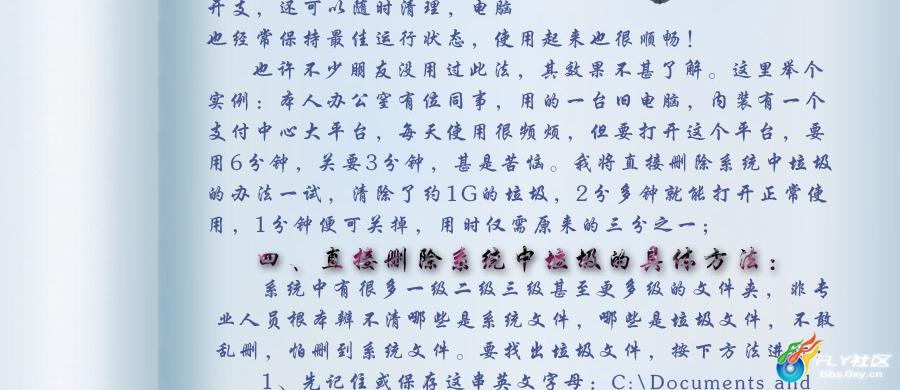 开支，还可以随时清理，电脑
也经常保持最佳运行状态，使用起来也很顺畅！
也许不少朋友没用过此法，其效果不甚了解。这里举个
实例：本人办公室有位同事，用的一台旧电脑，内装有一个
支付中心大平台，每天使用很频烦，但要打开这个平台，要
用6分钟，关要3分钟，甚是苦恼。我将直接删除系统中垃圾
的办法一试，清除了约1G的垃圾，2分多钟就能打开正常使
用，1分钟便可关掉，用时仅需原来的三分之一；
四、直接删除系统中垃圾的具体方法：
系统中有很多一级二级三级甚至更多级的文件夹，非专
业人员根本辨不清哪些是系统文件，哪些是垃圾文件，不敢
乱删，怕删到系统文件。要找出垃圾文件，按下方法进行：
1、先记住或保存这串英文字母：C:\Documents and
FLY社区
bbs.0xy.cn